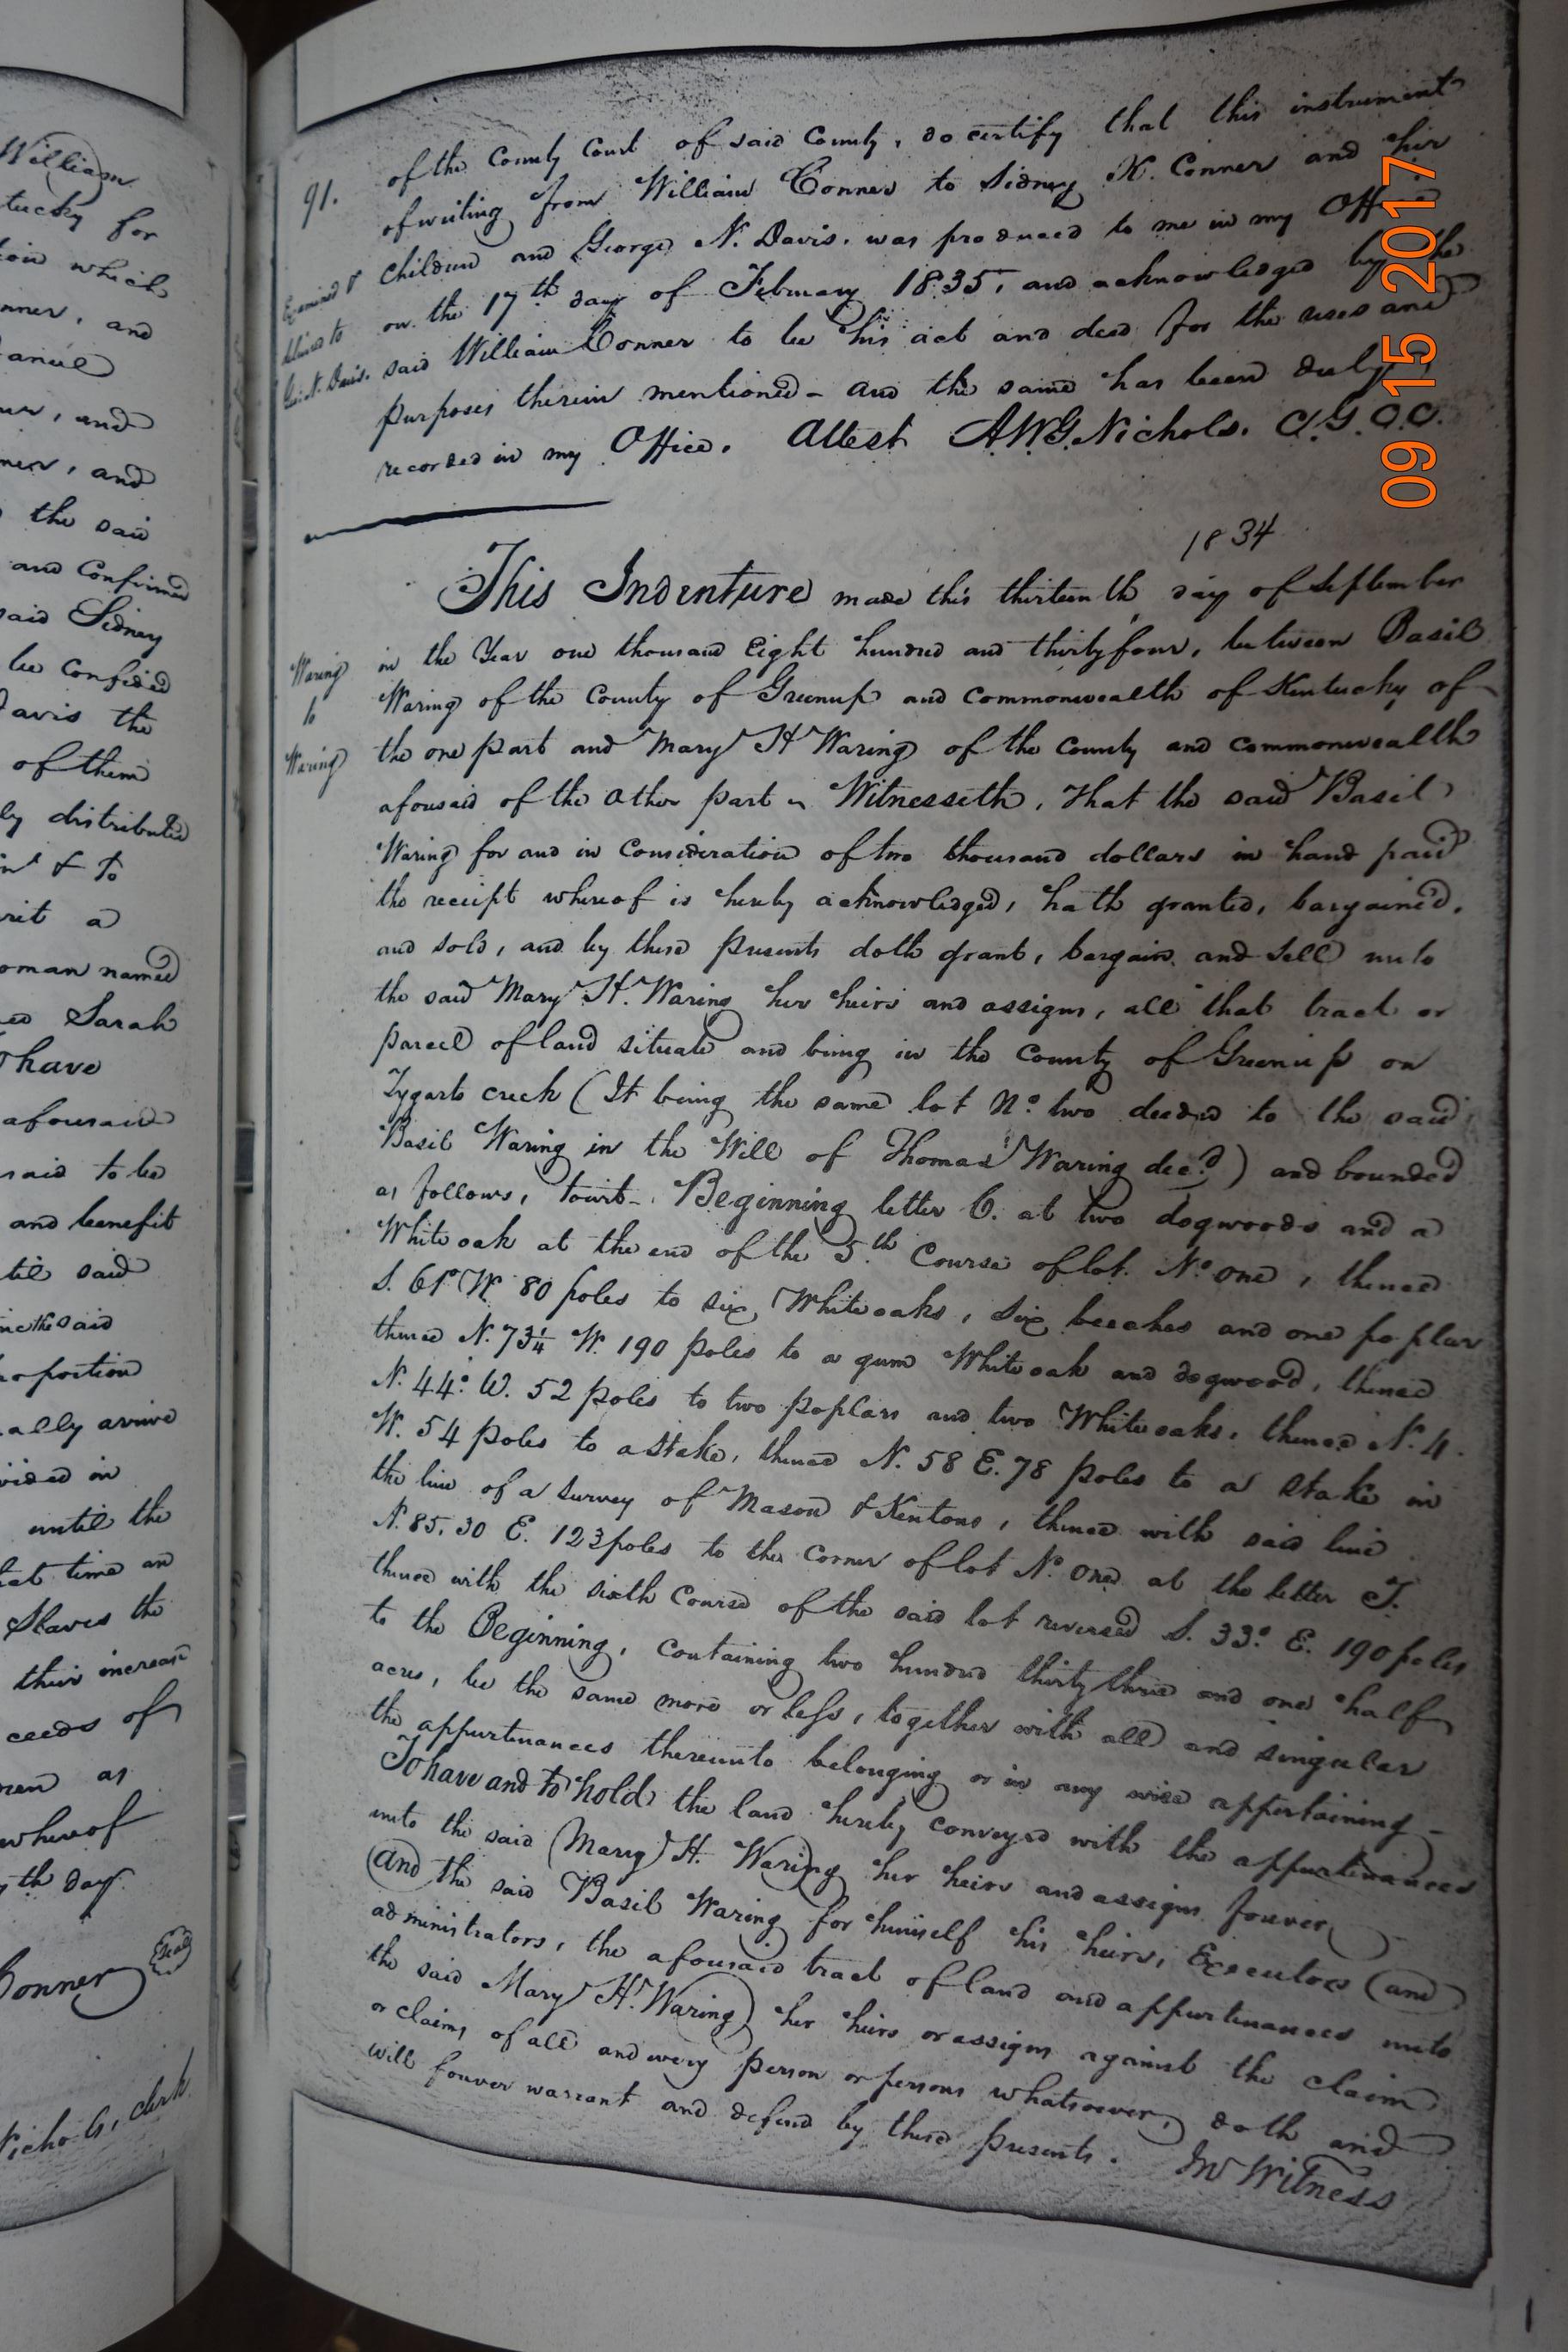 William
tucky for
tion which
nner, and
and
ner, and
the said
and Confirmed
said Sidney
be confided
Davis the
of them
ly distributed
& to
a
woman named
Sarah
have
aforesaid
said to be
and benefit
till said
the said
proportion
ally arrive
vided in
until the
that time an
Slaves the
their increase
ceeds of
ren as
whereof
th day
Conner Seal
Nichols, clerk
91.
of the County Court of said County, do certify that this instrument
of writing from William Conner to Sidney K. Conner and his
children and George N. Davis, was produced to me in my Office
on the 17th day of February 1835, and acknowledged by the
said William Conner to be his act and deed for the uses and
purposes therein mentioned - and the same has been duly
recorded in my Office. Attest A.W.G. Nichols. C.G.C.C.
Examined &
to
Geo. N. Davis.
09 15 2017
1834
This Indenture made this thirteenth day of September
in the Year one thousand Eight hundred and thirty four, between Basil
Waring of the County of Greenup and commonwealth of Kentucky of
the one part and Mary H Waring of the County and commonwealth
aforesaid of the other part - Witnesseth, That the said Basil
Waring for and in Consideration of two thousand dollars in hand paid
the receipt whereof is hereby acknowledged, hath granted, bargained,
and sold, and by these presents doth grant, bargain and sell unto
the said Mary H. Waring her heirs and assigns, all that tract or
parcel of land situate and being in the County of Greenup on
Tygarts creek (It being the same lot No. two deeded to the said
Basil Waring in the Will of Thomas Waring decd.) and bounded
as follows, towit - Beginning letter C. at two dogwoods and a
White oak at the end of the 5th Course of lot No. one, thence
S. 61° W 80 poles to six White oaks, six beeches and one poplar
thence N. 73 1/4 W. 190 poles to a gum White oak and dogwood, thence
N. 44° W. 52 poles to two poplars and two White oaks, thence N. 4.
W. 54 poles to a Stake, thence N. 58 E. 78 poles to a Stake in
the line of a Survey of Mason & Kentons, thence with said line
N. 85. 30 E. 123 poles to the Corner of lot No. One at the letter I.
thence with the sixth Course of the said lot reversed S. 33° E. 190 poles
to the Beginning, containing two hundred thirty three and one half
acres, be the same more or less, together with all and singular
the appurtenances thereunto belonging or in any wise appertaining -
To have and to hold the land hereby conveyed with the appurtenances
unto the said Mary H. Waring her heirs and assigns forever
and the said Basil Waring for himself his heirs, Executors and
administrators, the aforesaid tract of land and appurtenances unto
the said Mary H. Waring her heirs or assigns against the claim
or claims of all and every person or persons whatsoever, doth and
will forever warrant and defend by these presents. In Witness
Waring
to
Waring